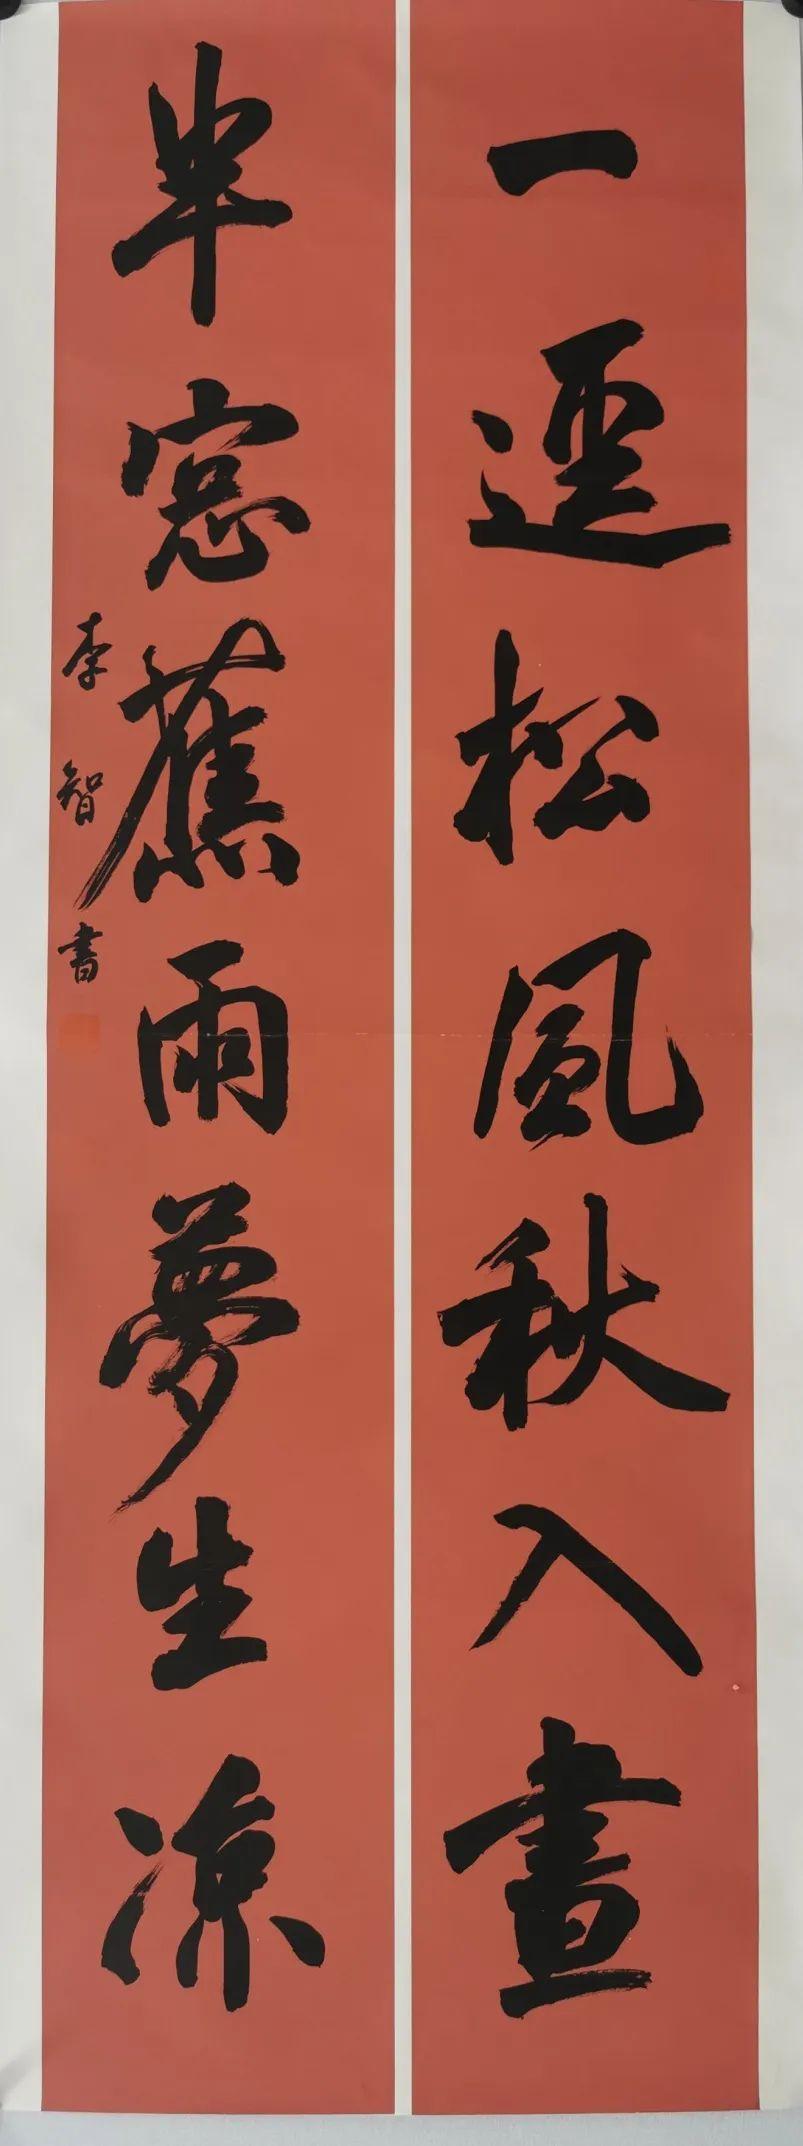 一逕松風秋入畫
半窓蕉雨夢生涼
李智書